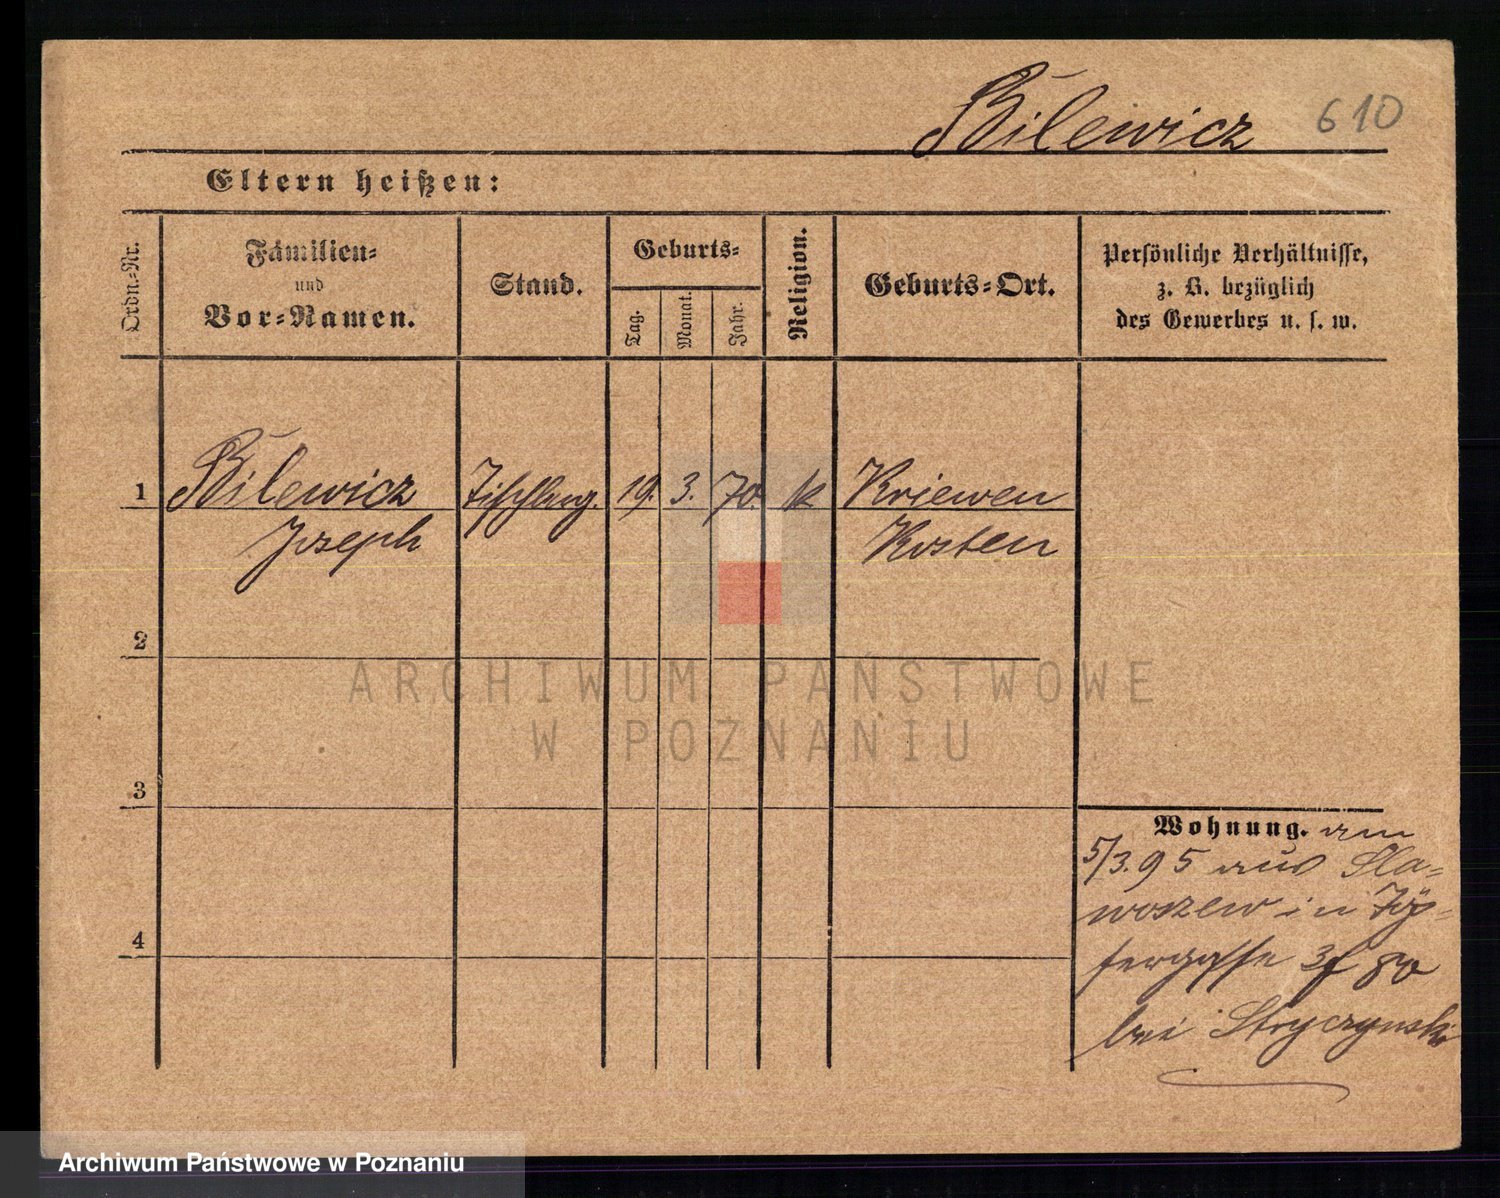 Bilewicz 610
Eltern heißen:
Ordn.-Nr.
Familien-
und
Vor-Namen.
Stand.
Geburts-
Tag.
Monat.
Jahr.
Religion.
Geburts-Ort.
Persönliche Verhältnisse,
z. B. bezüglich
des Gewerbes u. s. w.
1 Bilewicz Tischlerg. 19. 3. 70. k Kriewen
Joseph Kosten
2
ARCHIWUM PAŃSTWOWE
W POZNANIU
3
Wohnung. am
5/3.95 aus Sla-
woszew in Töp-
fergasse 3
bei Stryczynski
4
Archiwum Państwowe w Poznaniu